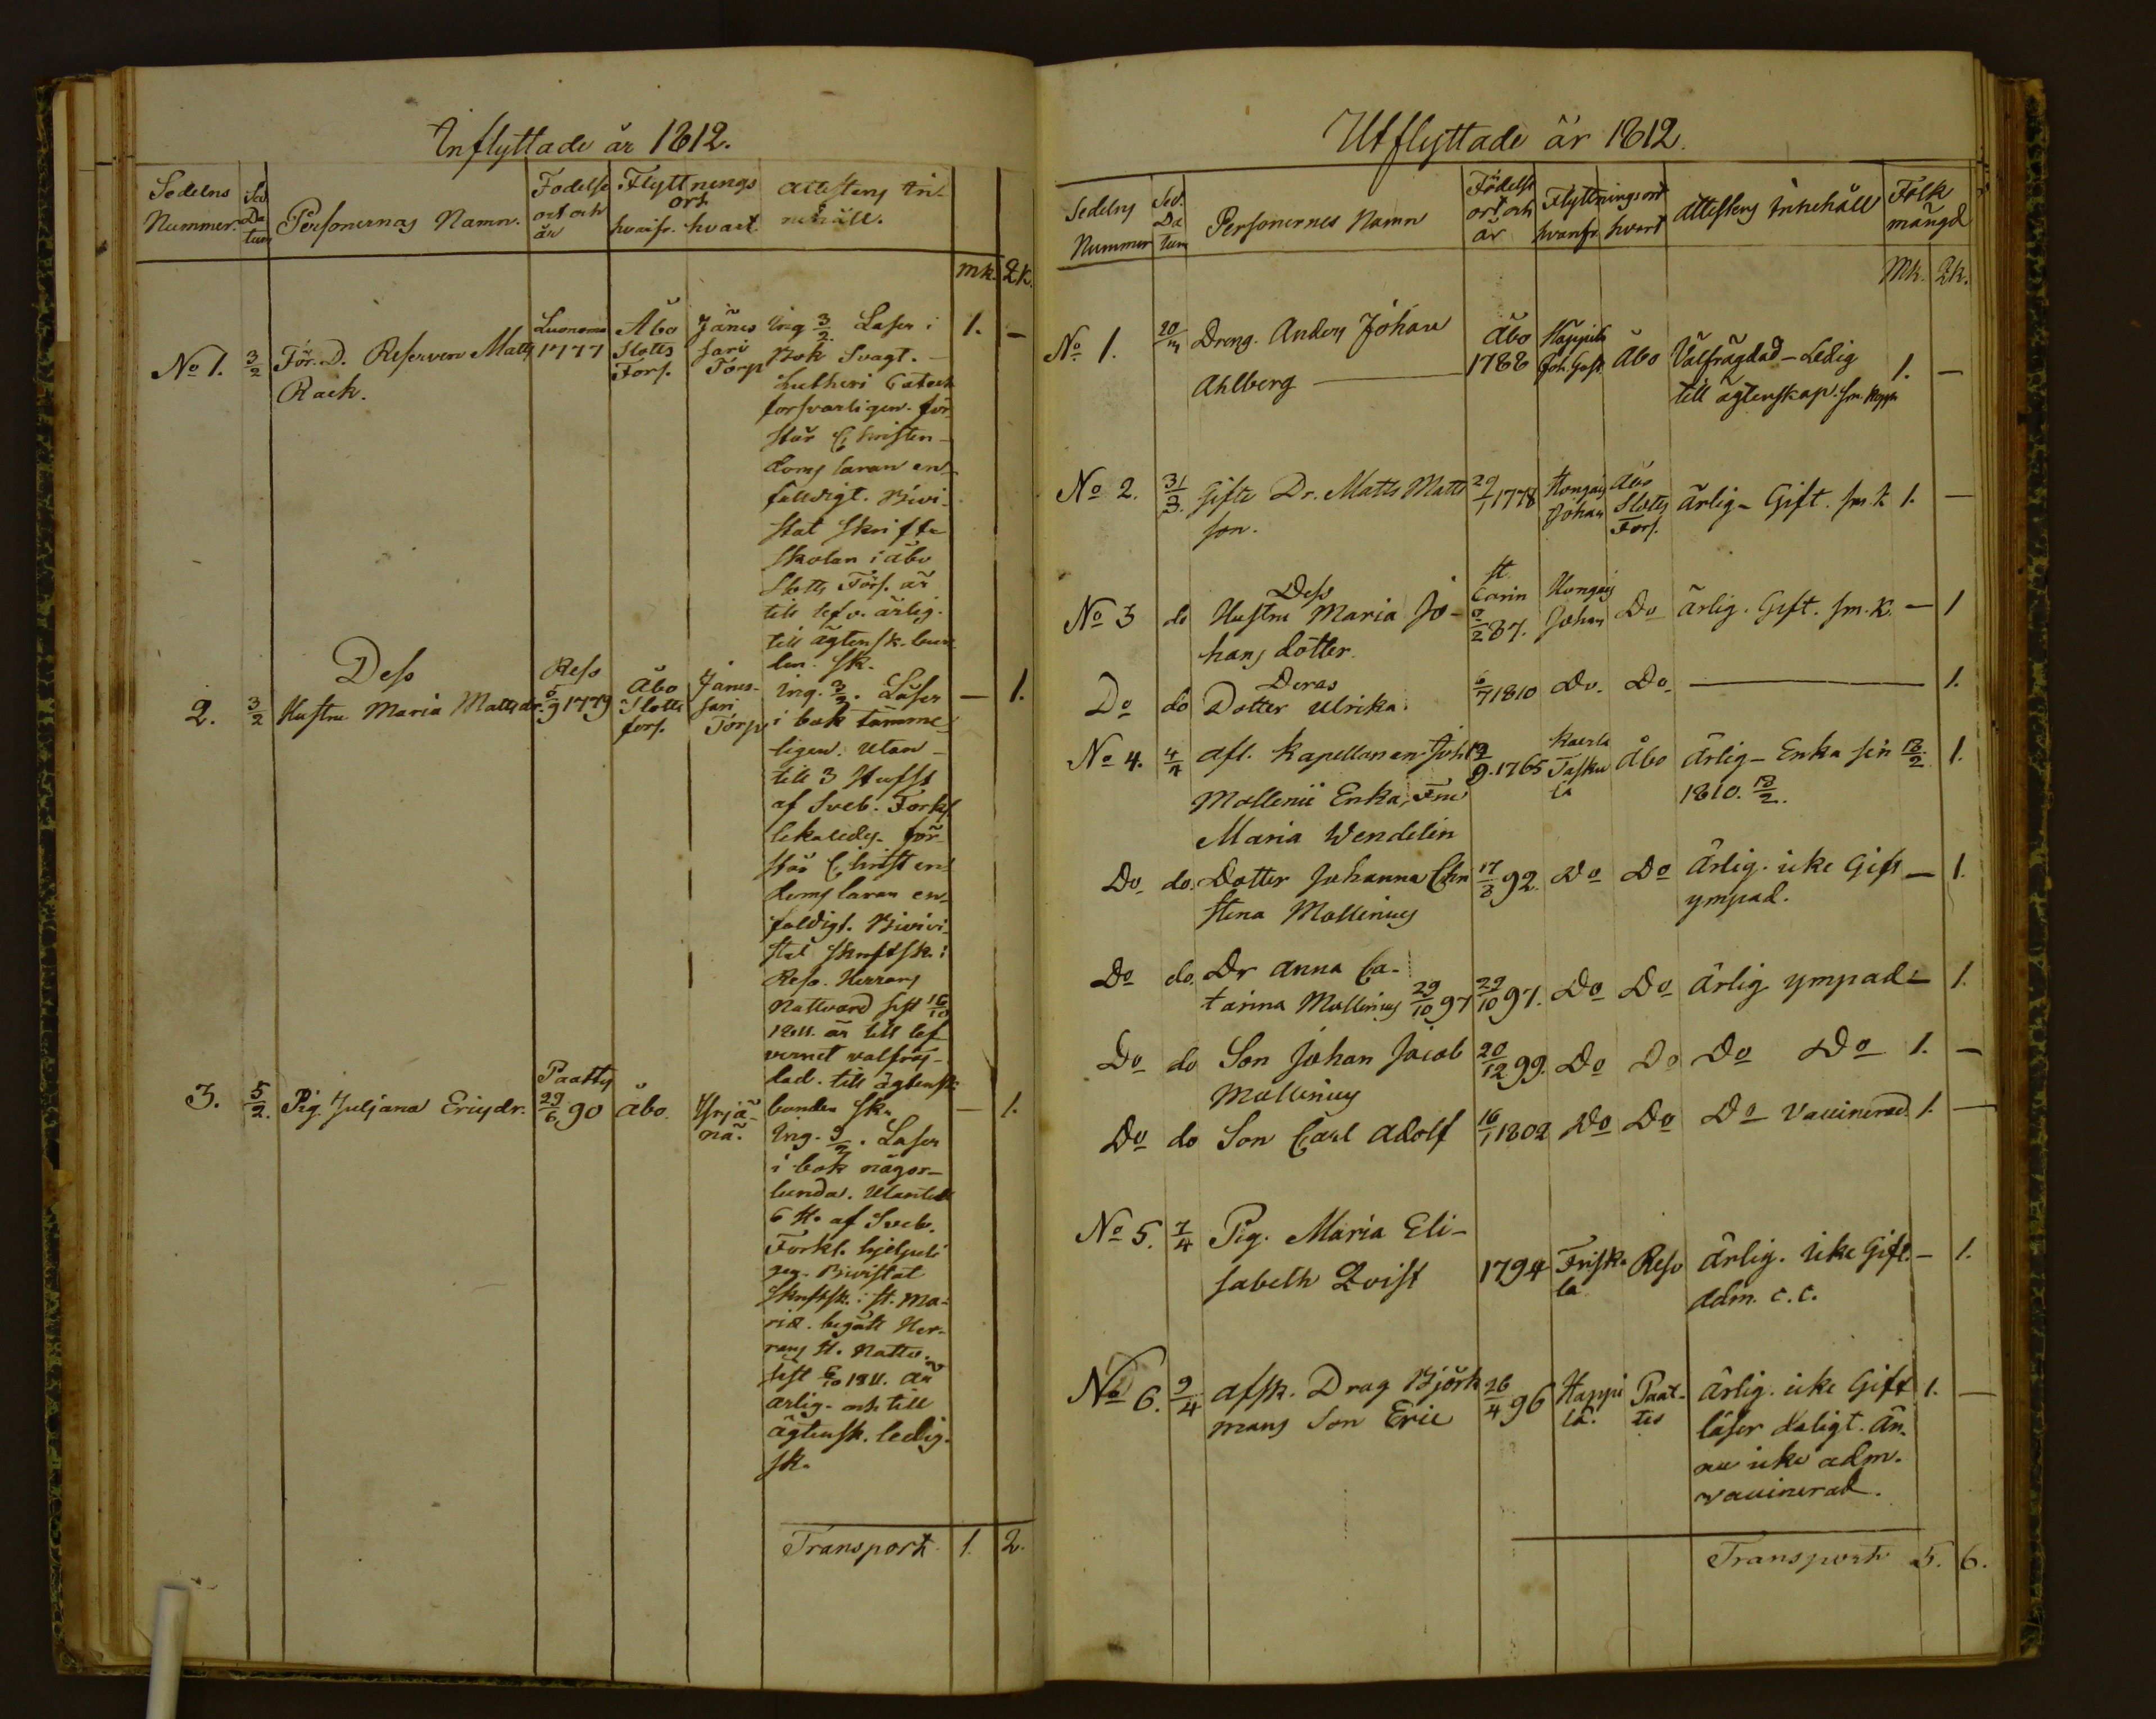 Inflyttade år 1812.
Sedelns Nummer.
Sed. Da tum
Personernas Namn.
Födelse ort och år
Flyttnings ort
hvarifr. hvart.
Attestens In-
nehåll.
mk. Qk.
No 1. 3/2 För. D. Reserven Matts
Rack.
1777
Åbo
Slotts
Förs.
Jänes
sari
Torp
Ing 3/2. Läser i
Bok svagt. -
Lutheri Catech
försvarligen. för
står Christen-
doms läran en-
faldigt. Bivi-
stat skrifte
skolan i Åbo
Slotts Förs. är
till lefv. ärlig.
till ägtensk. bun
den. sk.
1. -
2. 3/2 Dess
Hustru Maria Mattsdr.
Reso
5/9 1779
Åbo
Slotts
förs.
Jänes-
sari
Torp
Ing. 3/2. Läser
i bok tämme-
ligen. Utan-
till 3 Hufst
af Sveb. Förkl.
förstår Christen-
doms läran en-
faldigt. Bivi-
stat skriftsk. i
Reso. Herrans
Nattvard sist 16/10
1811. är till lef
vernet välfräj-
dad. till ägtensk:
bunden sk.
- 1.
3. 5/2. Pig. Juljana Ericsdr.
Paattis
29/6 90
Åbo.
Yrjä-
nä.
Ing. 9/2. Läser
i bok någor-
lunda. Utantill
6 H. af Sveb.
Förkl. hjelpeli
gen. Bivistat
skriftsk. i St. Ma-
riæ. begått Her-
rans H. Nattv.
sist 6/10 1811. är
ärlig. och till
ägtensk. ledig.
sk.
- 1.
Transport 1. 2.
Utflyttade år 1812.
Sedelns Nummer
Sed. Da tum
Personernes Namn
Födelse ort och år
Flyttnings ort
hvarifr. hvart
Attestens Innehåll
Folk
mängd
Mk. Qk.
No 1. 20/3 Dreng. Anders Johan
Ahlberg
Åbo
1788
Åbo
Välfrägdad - Ledig
till ägtenskap.
1. -
No 2. 31/3. Gifte Dr. Matts Matts
son.
29/1 1778
Hongais
Johan
Åbo
Slotts
Förs.
ärlig - Gift. sm. k 1. -
No 3 do Dess
Hustru Maria Jo-
hans dotter.
St.
Carin
2 87.
Hongais
Johan
Do ärlig. Gift. sm. K. - 1
Do do Deras
Dotter Ulrika.
6/7 1810 Do. Do 1.
No 4. 4/4 afl. Kapellanen Joh.
Mollenii Enka, Fru
Maria Wendelin
19/9. 1765
Kaerla
Tasku
la
Åbo ärlig - Enka sin 18/2
1810. 18/2.
1.
Do do. Dotter Johanna Chri
stina Mollinius
17/3 92. Do Do ärlig. icke Gift - 1.
ympad.
Do do. Dr Anna Ca-
tarina Mollinius 29/10 97
29/10 97. Do Do ärlig ympad - 1.
Do do Son Johan Jacob
Mollinius
20/12 99. Do Do Do Do 1. -
Do do Son Carl Adolf 16/1 1802 Do Do Do Vaccinerad 1. -
No 5. 7/4 Pig. Maria Eli-
sabeth Qvist
1794 Friska
la
Reso ärlig. icke Gift. - 1.
adm. c. c.
No 6. 9/4 afsk. Drag Björk
mans Son Eric
26/4 96 Happi
la.
Paat-
tis
ärlig. icke Gift 1. -
läser daligt. Än-
nu icke adm.
vaccinerad.
Transport 5. 6.